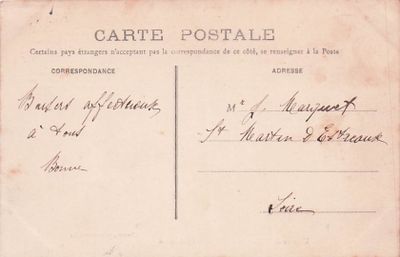 CARTE POSTALE
Certains pays étrangers n'acceptant pas la correspondance de ce côté, se renseigner à la Poste
CORRESPONDANCE
ADRESSE
Baisers affectueux
à tous
Mr J. Marquet
St Martin d'Estreaux
Loire